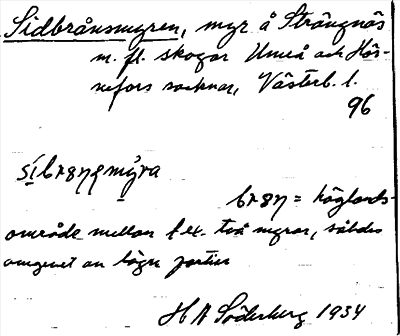 Sidbrånsmyren, myr å Strängnäs
m. fl. skogar Umeå och Hör-
nefors socknar, Västerb. l.
96
= höglands-
område mellan t.ex. två myrar, således
omgivet av lägre partier
H A Söderberg 1934